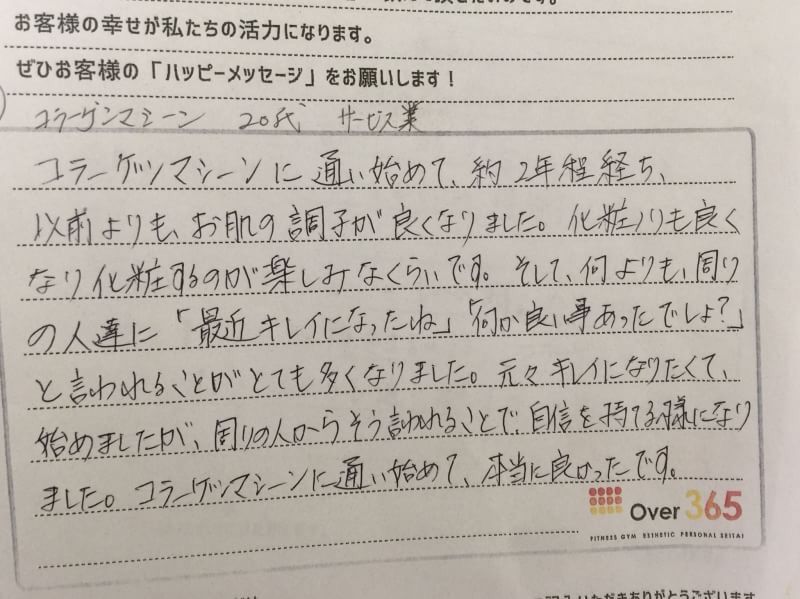 お客様の幸せが私たちの活力になります。
ぜひお客様の「ハッピーメッセージ」をお願いします！
コラーゲンマシーン 20代 サービス業
コラーゲンマシーンに通い始めて、約2年程経ち、
以前よりも、お肌の調子が良くなりました。化粧ノリも良く
なり化粧するのが楽しみなくらいです。そして、何よりも、周り
の人達に「最近キレイになったね」「何か良い事あったでしょ？」
と言われることがとても多くなりました。元々キレイになりたくて、
始めましたが、周りの人からそう言われることで、自信を持てる様になり
ました。コラーゲンマシーンに通い始めて、本当に良かったです。
Over 365
FITNESS GYM ESTHETIC PERSONAL SEITAI
記入いただきありがとうございます